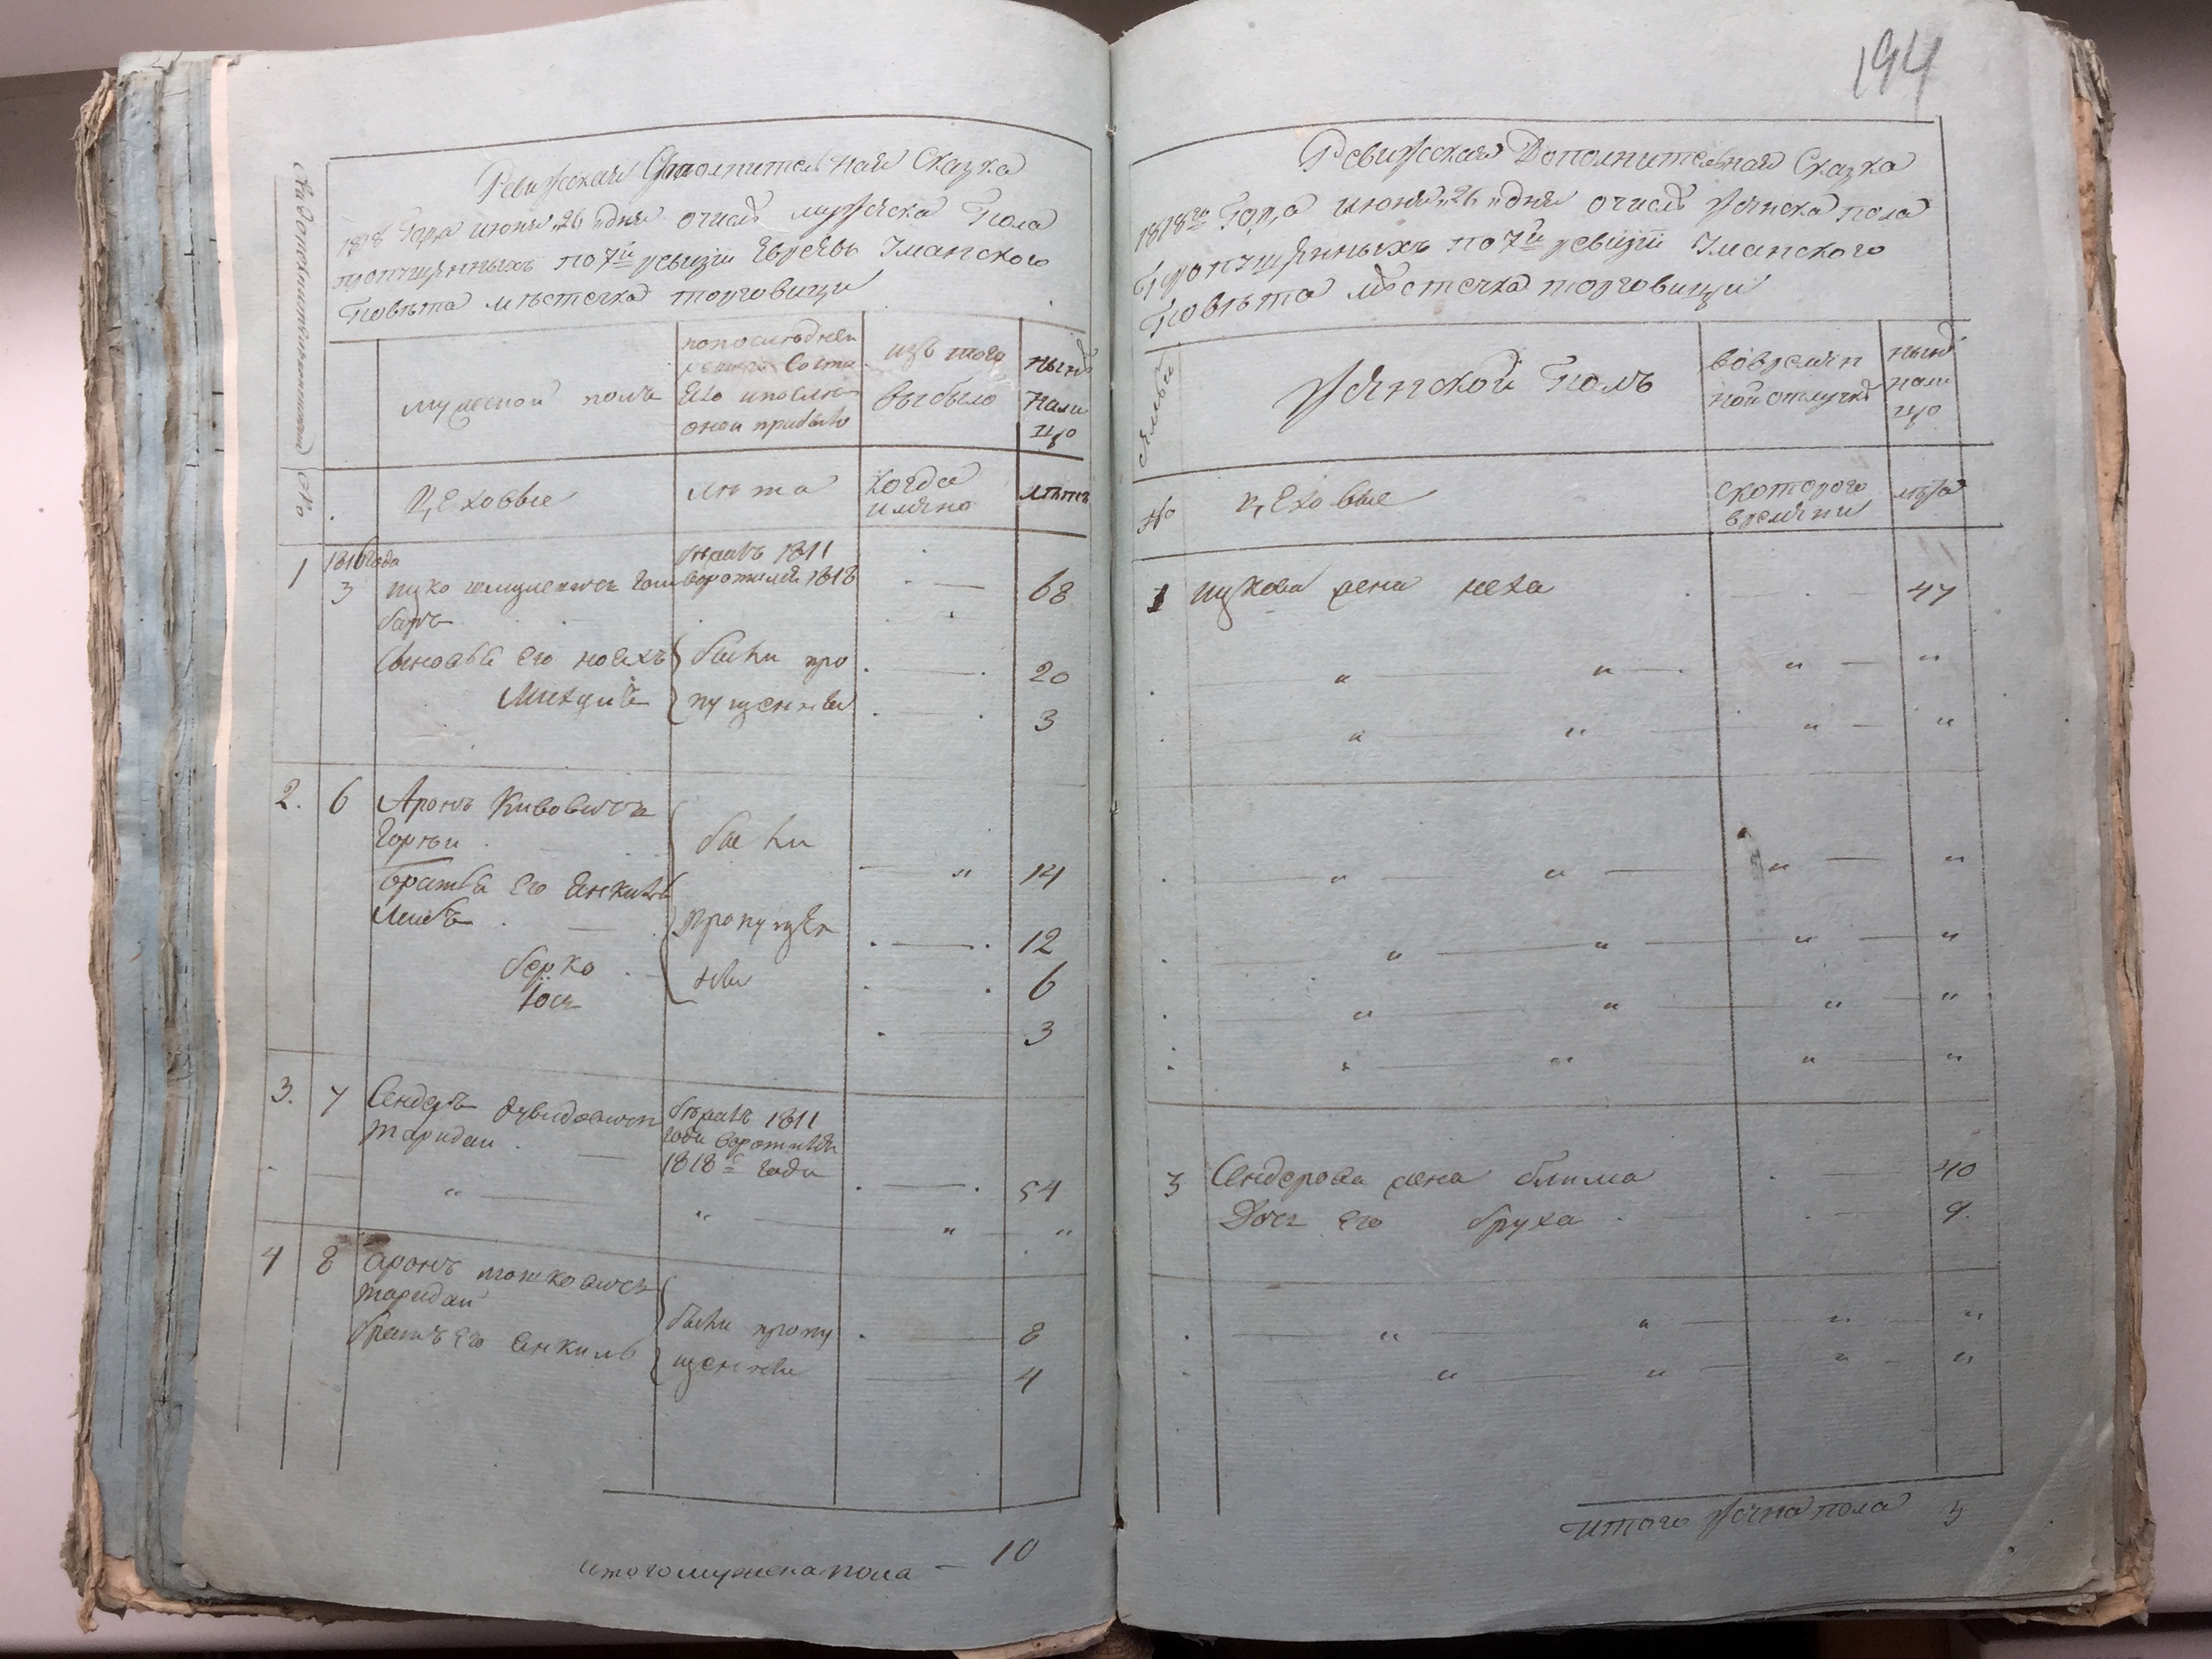 194
Ревизская Дополнительная Сказка
1818 Года июня „26 „дня о числѣ мужеска Пола
пропущенныхъ по 7й ревизіи Евреевъ Уманского
Повѣта мѣстечка торговици
мужеской полъ
по последней
Состо
яло и после
оной прибыло
изъ того
выбыло
нынѣ
нали
цо
№
Цеховые
лѣта
когда
имяно
лѣта
1
1816 года
3
бежалъ 1811
воротился 1818
68
сыновья его
были про
20
пущенны
3
2.
6
Аронъ Кивовичъ
были
14
братья его Янкель
Лейбъ
пропущен
12
берко
ны
6
Юсь
3
3.
7
Сендеръ дувидовичъ
бежалъ 1811
таридай
года воротился
1818 года
54
4
8
аронъ мошковичъ
таридай
были пропу
8
братъ его Янкиль
щенны
4
итого мужеска пола — 10
Ревизская Дополнительная Сказка
1818го Года июня „26 „дня о числѣ женска пола
Пропущенныхъ по 7й ревизіи Уманского
Повѣта мѣстечка торговици
семьи
Женской Полъ
во времян
ной отлучкѣ
нынѣ
нали
цо
№
цеховые
с которого
времяни
лѣта
1
жена хека
47
3
Сендерова жена блима
40
Дочь его бруха
9.
итого Женска пола 3